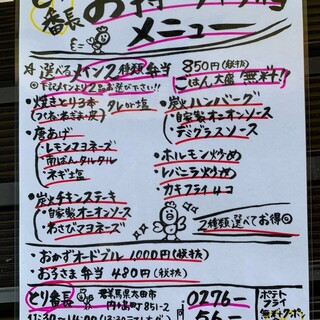 とり番長
お持
メニュー
選べるメイン2種類弁当 850円(税抜)
※下記メインより2品お選び下さい!! ごはん大盛無料!!
・焼きとり3本 タレor塩
(つくね・ねぎま・皮)
・炭火ハンバーグ
・自家製オニオンソース
・デミグラスソース
・唐あげ
・レモンマヨネーズ
・南ばんタルタル
・ネギ塩
・ホルモン炒め
・レバニラ炒め
・カキフライ4コ
・炭火チキンステーキ
・自家製オニオンソース
・わさびマヨネーズ
2種類選べてお得
・おかずオードブル 1000円(税抜)
・お子さま弁当 490円(税抜)
とり番長 群馬県太田市
内ヶ島町851-2
0276-
56-
11:30~14:00
ポテト
フライ
無料クーポン